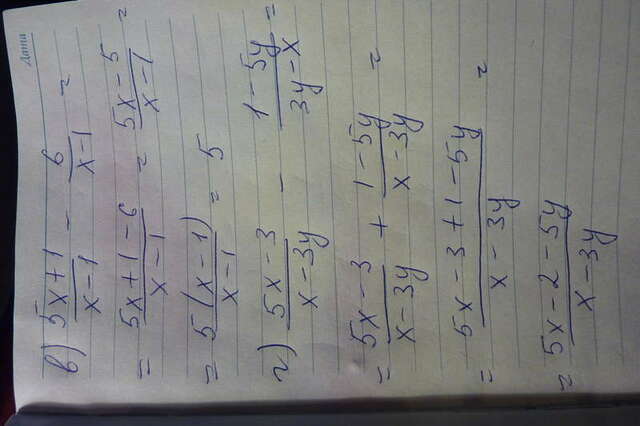 Дата
в) (5x+1)/(x-1) - 6/(x-1) =
= (5x+1-6)/(x-1) = (5x-5)/(x-1) =
= 5(x-1)/(x-1) = 5
г) (5x-3)/(x-3y) - (1-5y)/(3y-x) =
= (5x-3)/(x-3y) + (1-5y)/(x-3y) =
= (5x-3+1-5y)/(x-3y) =
= (5x-2-5y)/(x-3y)